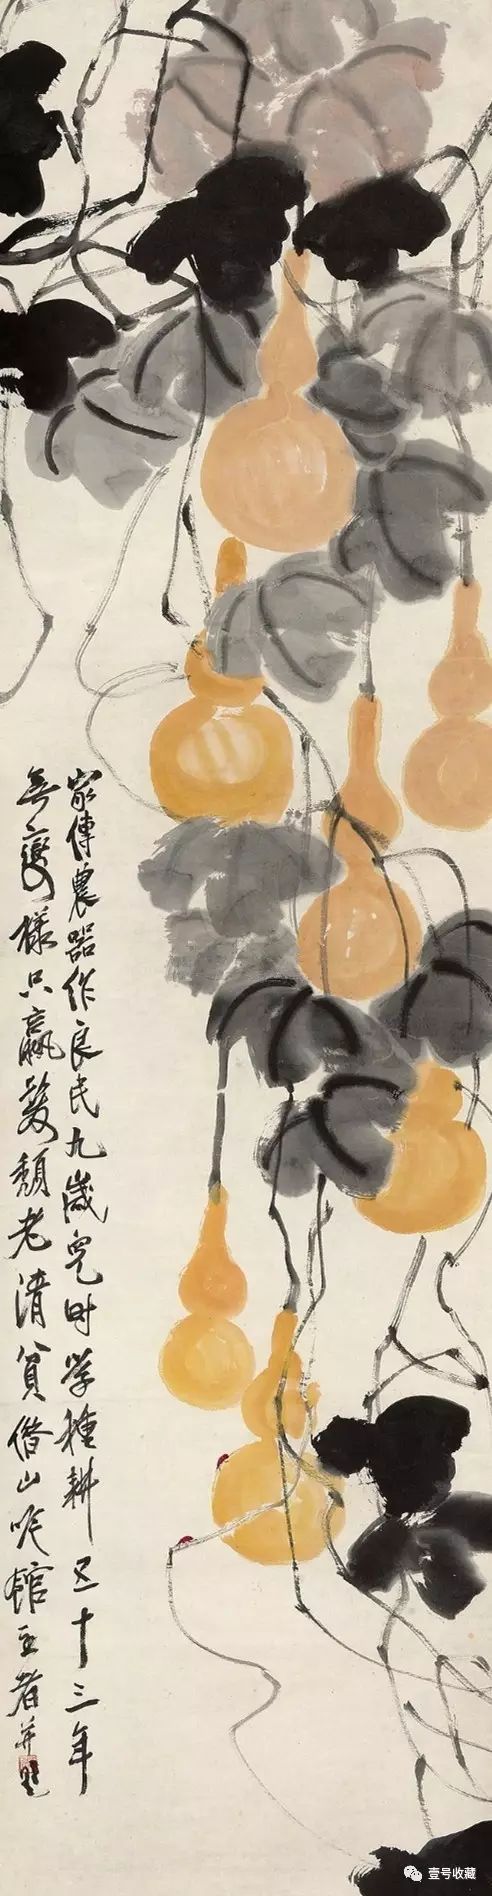 家傳農器作良民九歲兒時學種耕五十三年
無變樣只贏髮頹老清貧借山吟館主者并題
壹号收藏